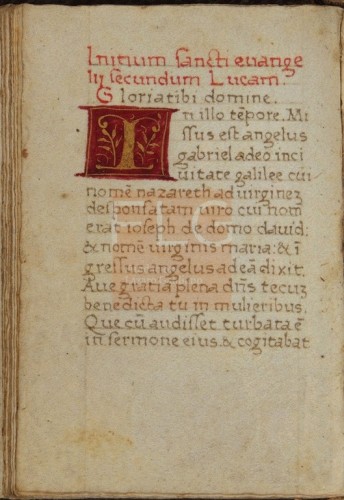 Initium sancti euange
lij secundum Lucam.
Gloria tibi domine.
In illo tẽpore. Mi
ssus est angelus
gabriel a deo in ci
uitate galilee cui
nomẽ nazareth ad uirginez
desponsatam uiro cui nom
erat ioseph de domo dauid:
& nomẽ uirginis maria: & ĩ
gressus angelus ad eã dixit.
Aue gratia plena dñs tecuz
benedicta tu in mulieribus.
Que cũ audisset turbata ẽ
in sermone eius. & cogitabat